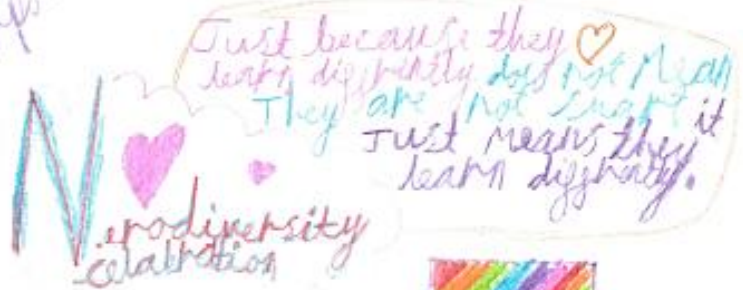 Just because they
learn diffrently dos not Mean
They are not smart it
Just means they
learn diffrently.
Nerodiversity
celabration